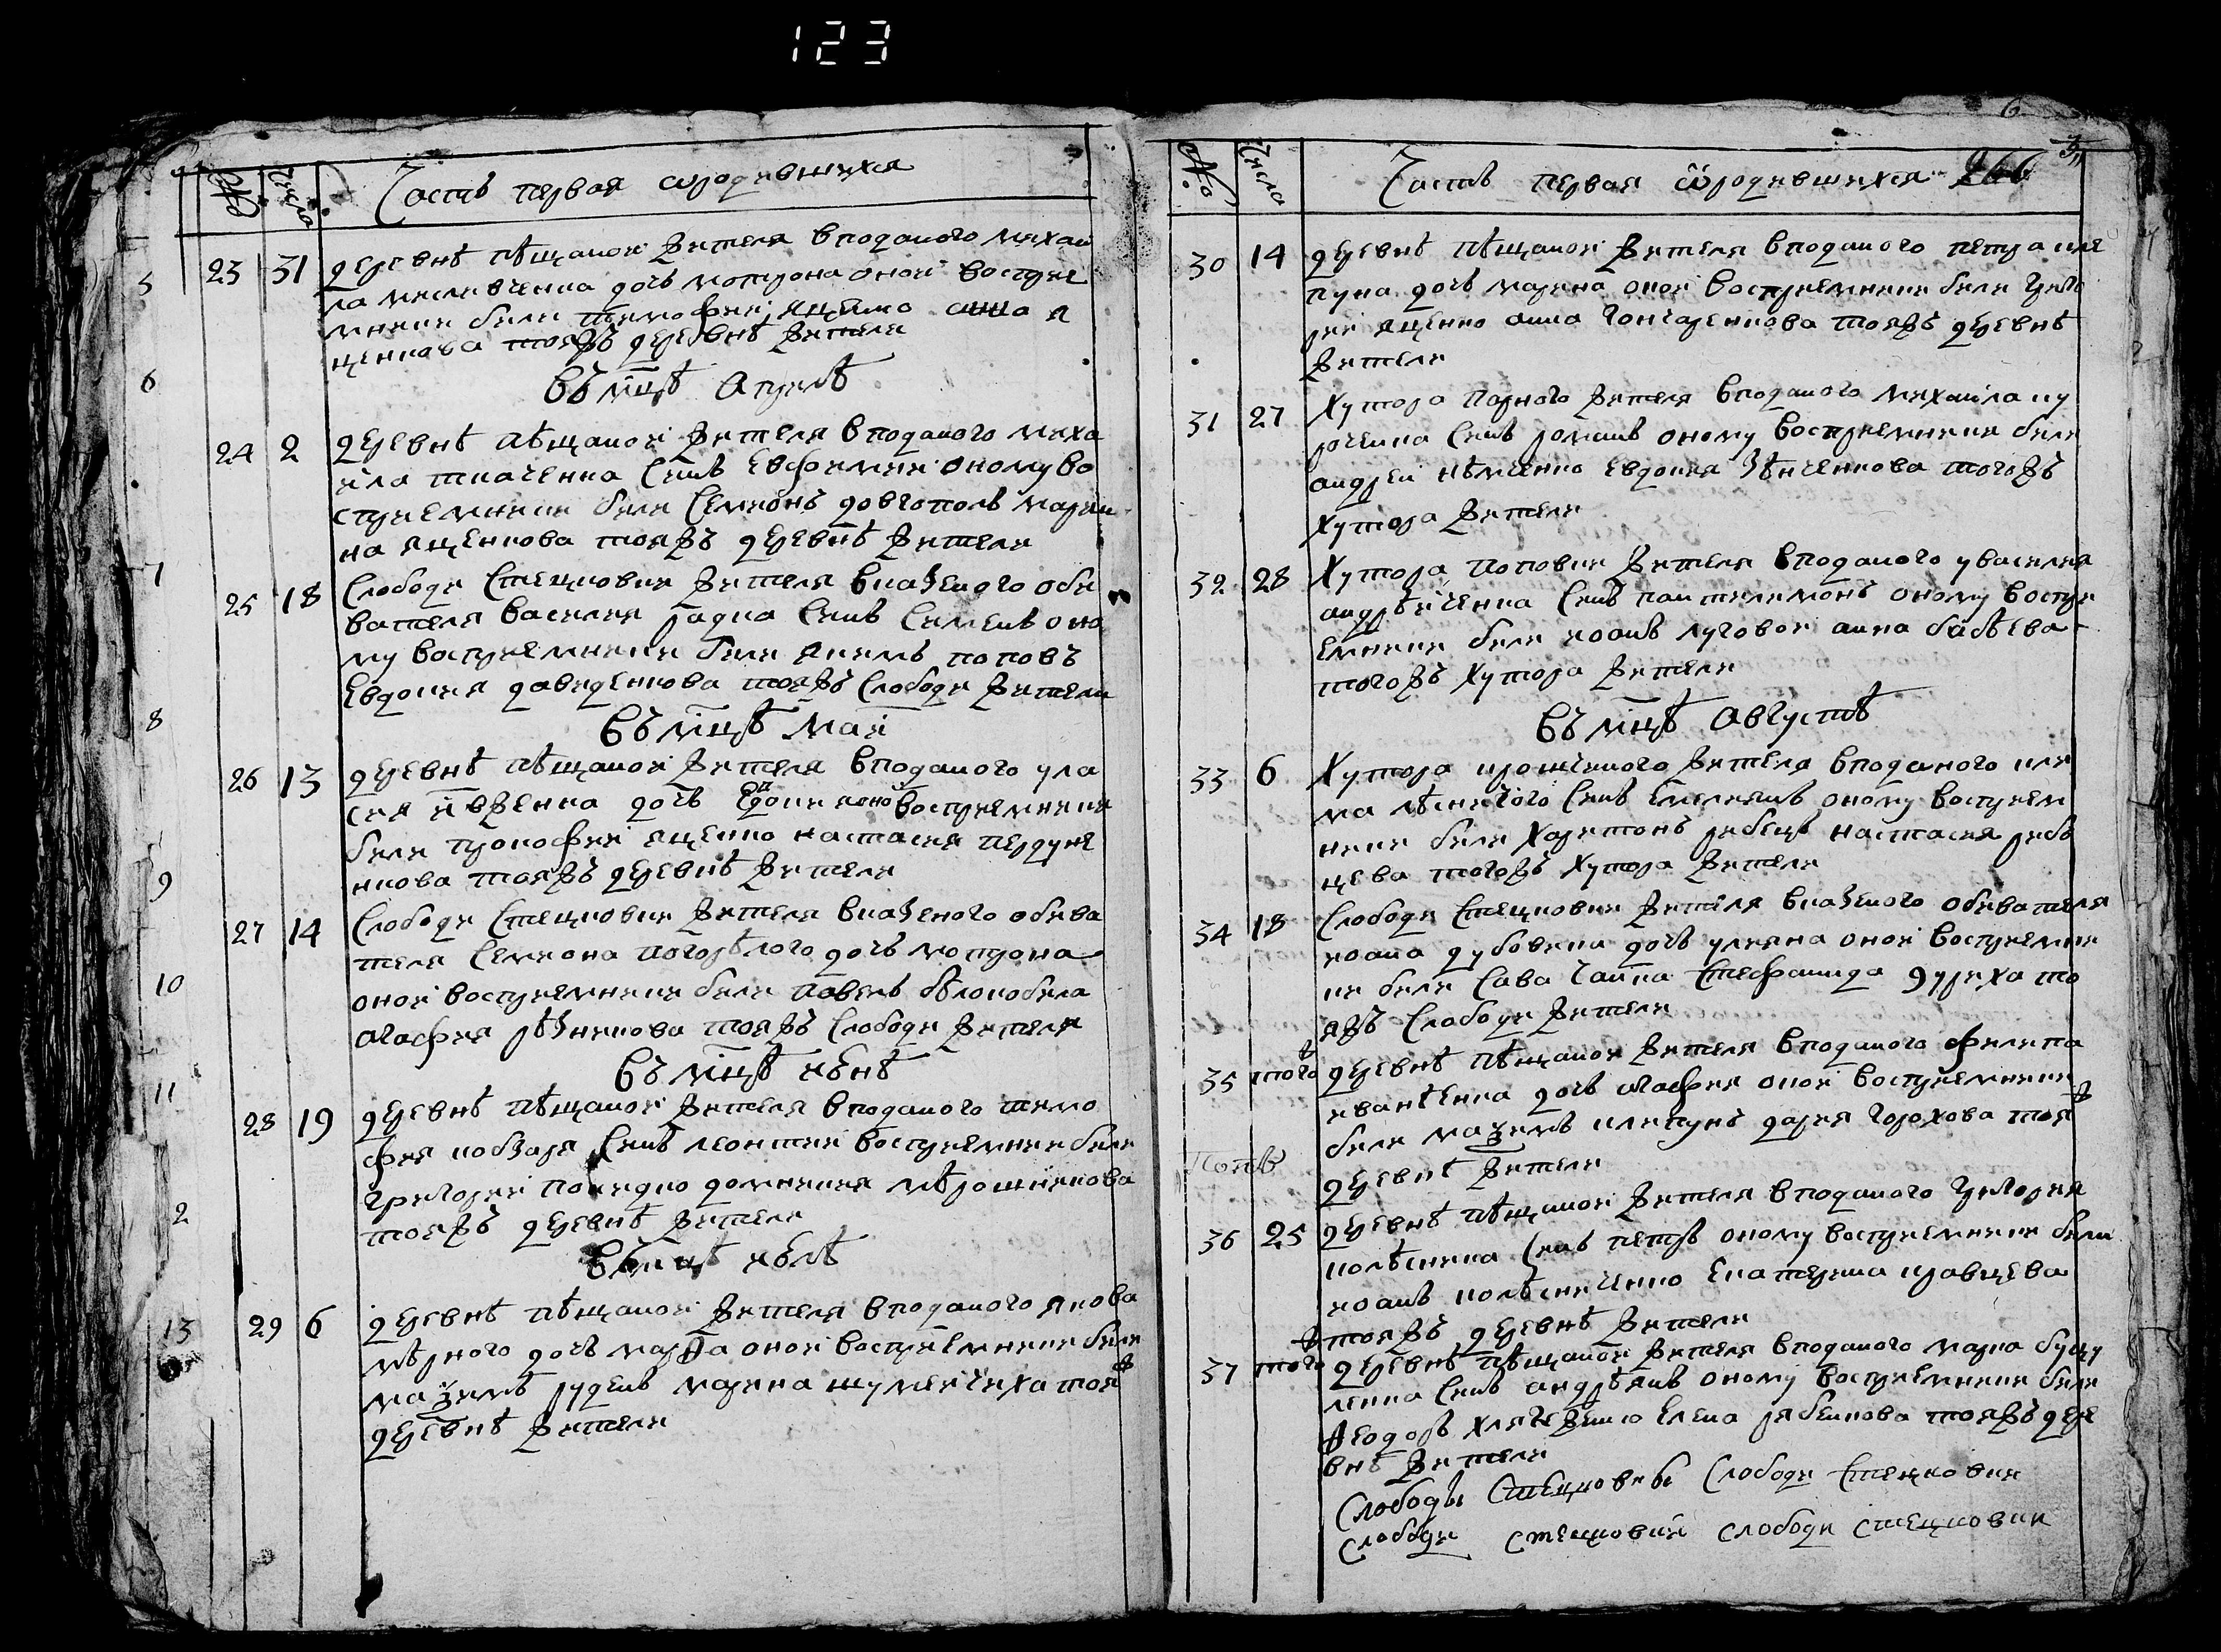 123
№ Число Часть первая ѡродившихся
23 31 деревнѣ пѣщаной жителя вподаного михаи
ла мислевченка дочъ мотрона оной восприе
мники били тимофей яценко анна я
ценкова тояжъ деревнѣ жители
Въ мцѣ Априлѣ
24 2 деревнѣ пѣщаной жителя вподаного миха
ила ткаченка синъ Евфимии оному во
сприемники били Семионъ довгополъ мари
на яценкова тояжъ деревнѣ жители
25 18 Слободи Стецковки жителя вказеного оби
вателя василия радка синъ Симеонъ оно
му восприемники били якимъ поповъ
Евдокия давиденкова тояжъ Слободи жители
Въ мцѣ маи
26 13 деревнѣ пѣщаной жителя вподаного ула
сия ивженка дочъ Евдокия оной восприемники
били прокофий яценко настасия перцуне
нкова тояжъ деревнѣ жители
27 14 Слободи Стецковки жителя вказеного обива
теля Семиона погорѣлого дочъ мотрона
оной восприемники били павелъ бѣлокобила
агафия рѣзникова тояжъ Слободи жители
Въ мцѣ июнѣ
28 19 деревнѣ пѣщаной жителя вподаного тимо
фия кобзаря синъ леонтий восприемники били
григорий покидко домникия мѣрошникова
тояжъ деревнѣ жители
Въ мцѣ июлѣ
29 6 деревнѣ пѣщаной жителя вподаного якова
мѣрного дочъ марѳа оной восприемники били
маѯимъ руденъ марина шумейчиха тояж
деревнѣ жители
5
6
7
8
9
10
11
2
13
6
3
№ Число Часть первая ѡродившихся 266
30 14 деревнѣ пѣщаной жителя вподаного петра кле
пуна дочъ марина оной восприемники били григо
рий яценко анна гончаренкова тояжъ деревнѣ
жители
31 27 Хутора парного жителя вподаного михаила ку
рочкина синъ романъ оному восприемники били
андрей нѣмченко Евдокия зѣнченкова тогожъ
хутора жители
32 28 Хутора попович жителя вподаного у василия
андрѣиченка синъ пантилимонъ оному воспри
емники били иоанъ луговой анна бабѣева
тогожъ Хутора жители
Въ мцѣ Августѣ
33 6 Хутора прошеного жителя вподаного кли
ма лѣсничого синъ Емелиянъ оному восприем
ники били Харитонъ рибецъ настасия риб
цева тогожъ Хутора жители
34 18 Слободи Стецковки жителя вказеного обивателя
иоана дубовика дочъ улияна оной восприемни
ки били Сава чайка Стефанида дуриха то
яжъ Слободи жители
35 тогож деревнѣ пѣщаной жителя вподаного филипа
иванченка дочъ агафия оной восприемники
били маѯимъ клепунъ дария горохова тояж
деревнѣ жители
36 25 деревнѣ пѣщаной жителя вподаного григория
колѣсника синъ петръ оному восприемники били
иоанъ колѣсниченко Екатерина кравцева
тояжъ деревнѣ жители
37 тогож деревнѣ пѣщаной жителя вподаного марка буцу
ленка синъ андрѣянъ оному восприемники били
ѳеодоръ Елена рябенкова тояжъ дере
внѣ жители
Слободы Стецковкы Слободи Стецковки
Слободи Стецковки Слободи Стецковки